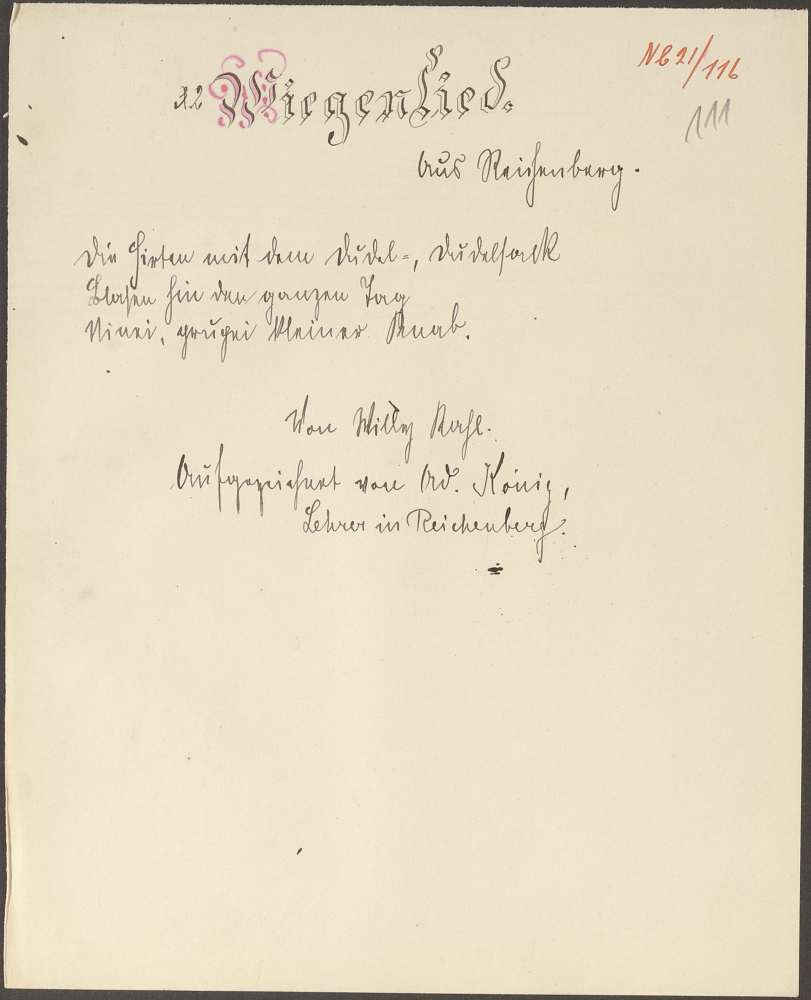 NB 21/116
111
Wiegenlied.
Aus Reichenberg.
Die Hirten mit dem Dudel-, Dudelsack
Blasen hin den ganzen Tag
Ninei, grugei kleiner Knab.
Von Willy Kahl.
Aufgezeichnet von Ad. König,
Lehrer in Reichenberg.